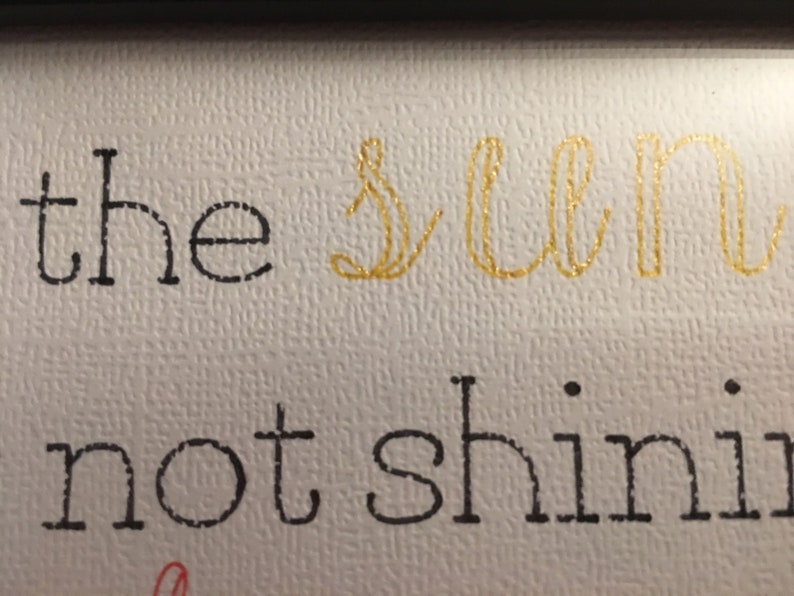 the sun
not shinin